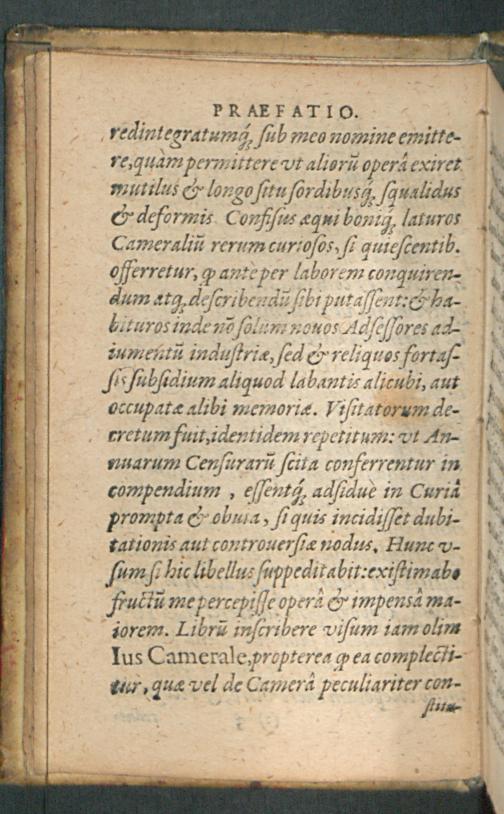 PRAEFATIO.
redintegratumq́; sub meo nomine emitte-
re, quàm permittere vt aliorũ operâ exiret
mutilus & longo situ sordibusq́; squalidus
& deformis. Confisus æqui boniq́; laturos
Cameraliũ rerum curiosos, si quiescentib.
offerretur, ꝙ ante per laborem conquiren-
dum atq; describendũ sibi putassent: & ha-
bituros inde nõ solum nouos Adsessores ad-
iumentũ industriæ, sed & reliquos fortas-
sis subsidium aliquod labantis alicubi, aut
occupatæ alibi memoriæ. Visitatorum de-
cretum fuit, identidem repetitum: vt An-
nuarum Censurarũ scita conferrentur in
compendium, essentq́; adsiduè in Curiâ
prompta & obuia, si quis incidisset dubi-
tationis aut controuersiæ nodus. Hunc v-
sum si hic libellus suppeditabit: existimabo
fructũ me percepisse operâ & impensâ ma-
iorem. Librũ inscribere visum iam olim
Ius Camerale, propterea ꝙ ea complecti-
tur, quæ vel de Camerâ peculiariter con-
stitu-